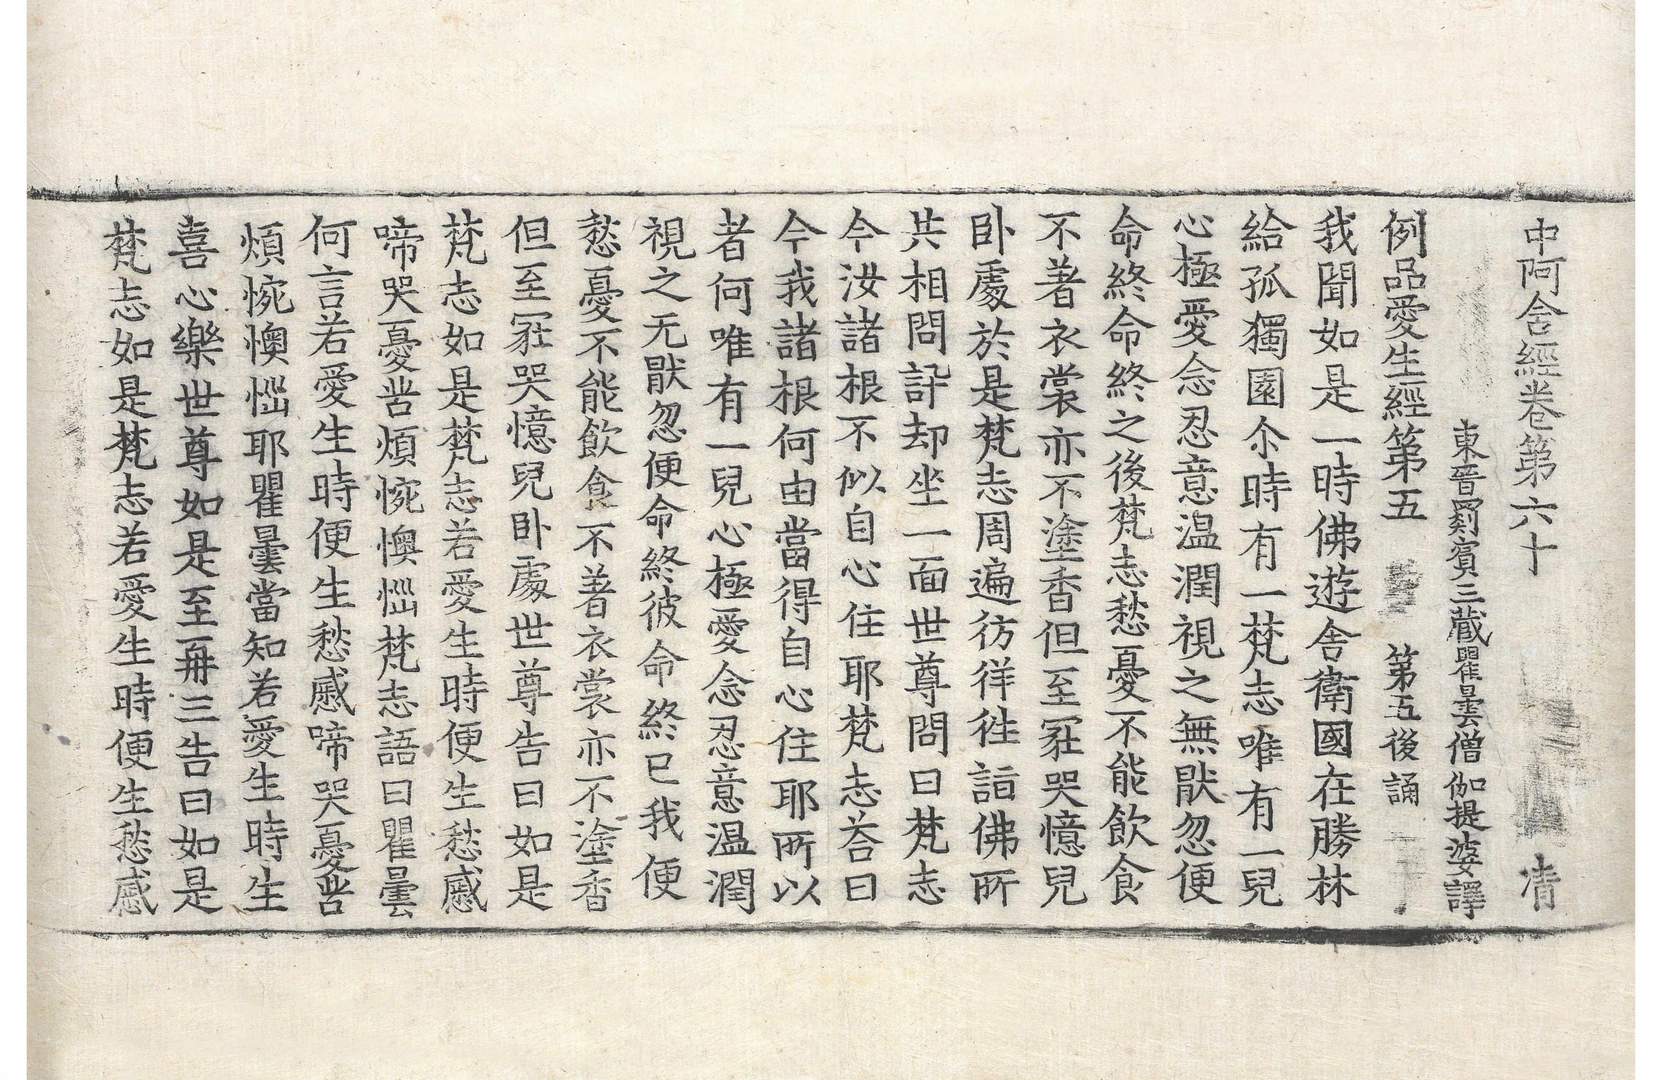 中阿含經卷第六十 清
東晉罽賓三藏瞿曇僧伽提婆譯
例品愛生經第五 第五後誦
我聞如是一時佛遊舍衛國在勝林
給孤獨園尒時有一梵志唯有一兒
心極愛念忍意温潤視之無猒忽便
命終命終之後梵志愁憂不能飲食
不著衣裳亦不塗香但至冡哭憶兒
卧處於是梵志周遍彷徉徃詣佛所
共相問訊却坐一面世尊問曰梵志
今汝諸根不似自心住耶梵志荅曰
今我諸根何由當得自心住耶所以
者何唯有一兒心極愛念忍意温潤
視之无猒忽便命終彼命終已我便
愁憂不能飲食不著衣裳亦不塗香
但至冡哭憶兒卧處世尊告曰如是
梵志如是梵志若愛生時便生愁慼
啼哭憂苦煩惋懊惱梵志語曰瞿曇
何言若愛生時便生愁慼啼哭憂苦
煩惋懊惱耶瞿曇當知若愛生時生
喜心樂世尊如是至再三告曰如是
梵志如是梵志若愛生時便生愁慼